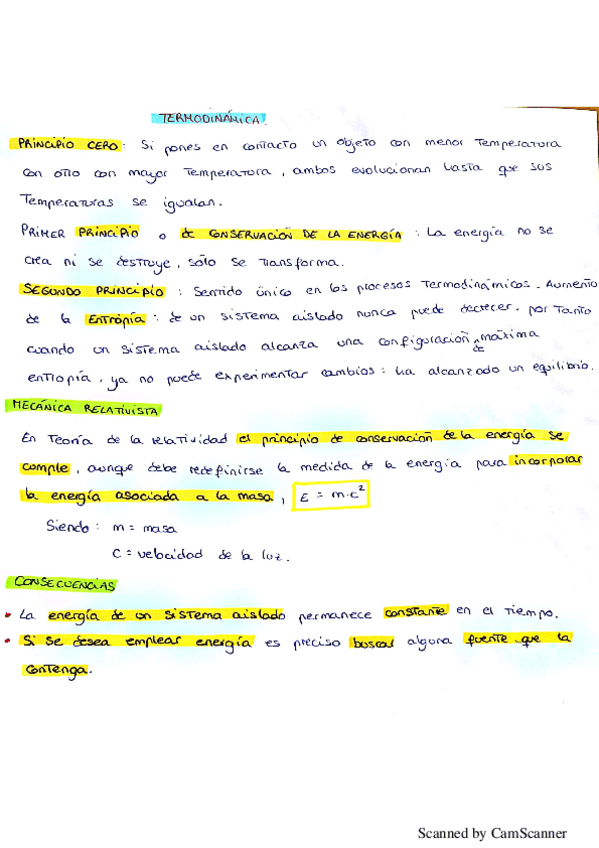 TERMODINÁMICA.
PRINCIPIO CERO: Si pones en contacto un objeto con menor temperatura
con otro con mayor temperatura, ambos evolucionan hasta que sus
temperaturas se igualan.
PRIMER PRINCIPIO o de CONSERVACIÓN DE LA ENERGÍA: La energía no se
crea ni se destruye, sólo se transforma.
SEGUNDO PRINCIPIO: Sentido único en los procesos termodinámicos. Aumento
de la Entropía: de un sistema aislado nunca puede decrecer. por tanto
cuando un sistema aislado alcanza una configuración de máxima
entropía, ya no puede experimentar cambios: ha alcanzado un equilibrio.
MECÁNICA RELATIVISTA
En Teoría de la relatividad el principio de conservación de la energía se
cumple, aunque debe redefinirse la medida de la energía para incorporar
la energía asociada a la masa, E = m·c²
Siendo: m = masa
C = velocidad de la luz.
CONSECUENCIAS
• La energía de un sistema aislado permanece constante en el tiempo.
• Si se desea emplear energía es preciso buscar alguna fuente que la
contenga.
Scanned by CamScanner